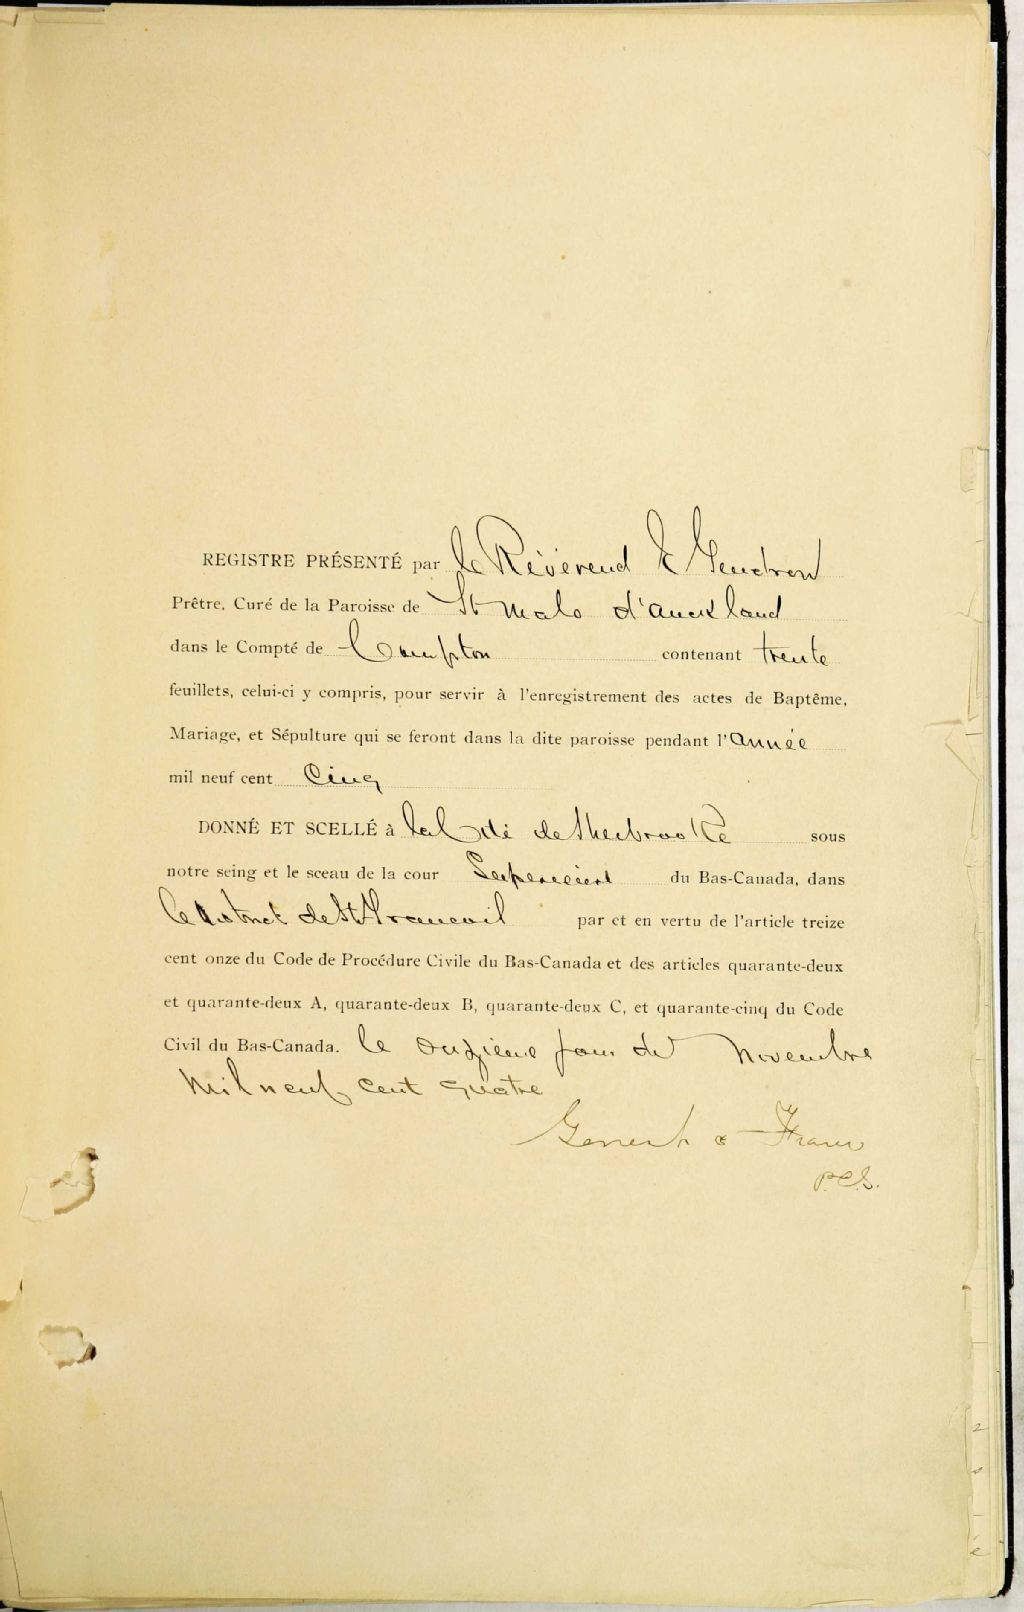 REGISTRE PRÉSENTÉ par le Révérend E Gendron
Prêtre, Curé de la Paroisse de St Malo d'Auckland
dans le Compté de Compton contenant trente
feuillets, celui-ci y compris, pour servir à l'enregistrement des actes de Baptême,
Mariage, et Sépulture qui se feront dans la dite paroisse pendant l'année
mil neuf cent Cinq
DONNÉ ET SCELLÉ à la Cité de Sherbrooke sous
notre seing et le sceau de la cour Supérieure du Bas-Canada, dans
le district de St François par et en vertu de l'article treize
cent onze du Code de Procédure Civile du Bas-Canada et des articles quarante-deux
et quarante-deux A, quarante-deux B, quarante-deux C, et quarante-cinq du Code
Civil du Bas-Canada. le onzieme jour de Novembre
Mil neuf cent quatre
&
P.C.S.